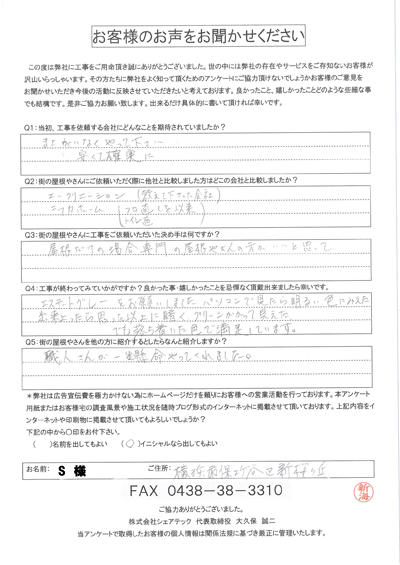 お客様のお声をお聞かせください
この度は弊社に工事をご用命頂き誠にありがとうございました。世の中には弊社の存在やサービスをご存知ないお客様が
沢山いらっしゃいます。その方たちに弊社をよく知って頂くためのアンケートにご協力頂けないでしょうかお客様のご意見を
お聞かせいただき今後の活動に反映させていただきたいと考えております。良かったこと、嬉しかったことどのような些細な事
でも結構です。是非ご協力お願い致します。出来るだけ具体的に書いて頂ければ幸いです。
Q1:当初、工事を依頼する会社にどんなことを期待されていましたか?
まちがいなくやって下さい
早くて確実に
Q2:街の屋根やさんにご依頼いただく際に他社と比較しました方はどこの会社と比較しましたか?
Q3:街の屋根やさんに工事をご依頼いただいた決め手は何ですか?
屋根だけの場合専門の屋根やさんの方がいいと思って
Q4:工事が終わってみていかがですか?良かった事・嬉しかったことを忌憚なく頂戴出来ましたら幸いです。
エステートグレーをお願いしました パソコンで見たら明るい色にみえた
出来上ったら思った以上に暗く グリーンかかって見えた
でも落ち着いた色で満足しています。
Q5:街の屋根やさんを他の方に紹介するとしたらなんと紹介しますか?
職人さんが一生懸命やってくれました。
*弊社は広告宣伝費を極力かけない為にホームページだけを頼りにお客様への営業活動を行っております。本アンケート
用紙またはお客様宅の調査風景や施工状況を随時ブログ形式のインターネットに掲載させて頂いております。上記内容をイ
ンターネットや印刷物に掲載させて頂いてもよろしいでしょうか?
下記の中から〇印をお付下さい。
( )名前を出してもよい (〇)イニシャルなら出してもよい
お名前: S 様 ご住所: 横浜市保土ヶ谷区新桜ヶ丘
FAX 0438-38-3310
新海
ご協力ありがとうございました。
株式会社シェアテック 代表取締役 大久保 誠二
当アンケートで取得したお客様の個人情報は関係法規に基づき厳正に管理いたします。